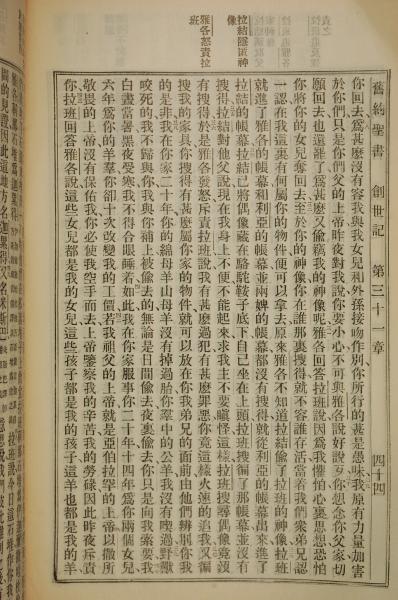 舊約聖書 創世記 第三十一章 四十四
你回去爲甚麼沒有容我與我女兒和外孫接吻作別你所行的甚是愚昧我原有力量加害
於你們只是你們父的上帝昨夜對我說你要小心不可與雅各說好說歹你想念你父家切
願回去也還罷了爲甚麼又偷竊我的神像呢雅各回答拉班說因爲我懼怕心裏思想恐怕
你將你的女兒奪回去至於你的神像你在誰那裏搜得就不容誰存活當着我們衆弟兄認
一認在我這裏有何屬你的物件便可以拿去原來雅各不知道拉結偷了拉班的神像拉班
就進了雅各的帳幕和利亞的帳幕並兩婢的帳幕都沒有搜得就從利亞的帳幕出來進了
拉結的帳幕拉結已將偶像藏在駱駝鞍子底下自己坐在上頭拉班搜徧了那帳幕並沒有
搜得拉結對他父說現在我身上不便不能起來求我主不要嗔怪這樣拉班搜尋偶像竟沒
有搜得於是雅各發怒斥責拉班說我有甚麼過犯有甚麼罪惡你竟這樣火速的追我又徧
搜我的家具你搜得有甚麼屬你家的物件就可以放在你我弟兄的面前由他們辨別你我
的是非我在你家二十年你的綿母羊山母羊沒有掉過胎你羣中的公羊我沒有喫過野獸
咬死的我不歸與你我與你補上被偷去的無論是日間偷去夜裏偷去你只是向我索要我
白晝當暑黑夜受寒我不得合眼睡着如此我在你家服事你二十年十四年爲你兩個女兒
六年爲你的羊羣你卻十次改變我的工價若不是我祖父的上帝就是亞伯拉罕的上帝以撒所
敬畏的上帝沒有保佑我你必使我空手而去上帝鑒察我的辛苦我的勞碌因此昨夜斥責
你拉班回答雅各說這些女兒都是我的女兒這些孩子都是我的孩子這羊也都是我的羊
拉結匿神
像
雅各怒責拉
班